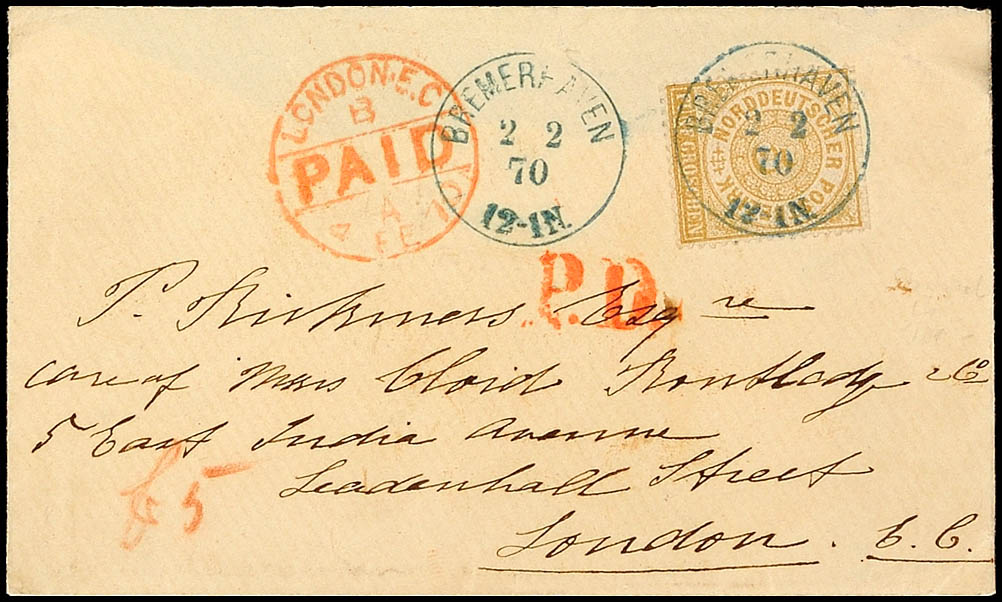 LONDON·E.C
B
PAID
A
4 FE 70
BREMERHAVEN
2 2
70
12-1N.
BREMERHAVEN
2 2
70
12-1N.
NORDDEUTSCHER POSTBEZIRK
GROSCHEN
P.D.
P. Rickmers Esqre
care of Messrs Cloid Routledg & Co
5 East India Avenue
Leadenhall Street
London. E. C.
f 5